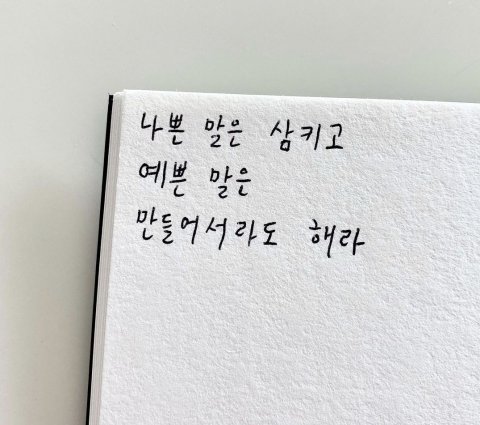 나쁜 말은 삼키고
예쁜 말은
만들어서라도 해라